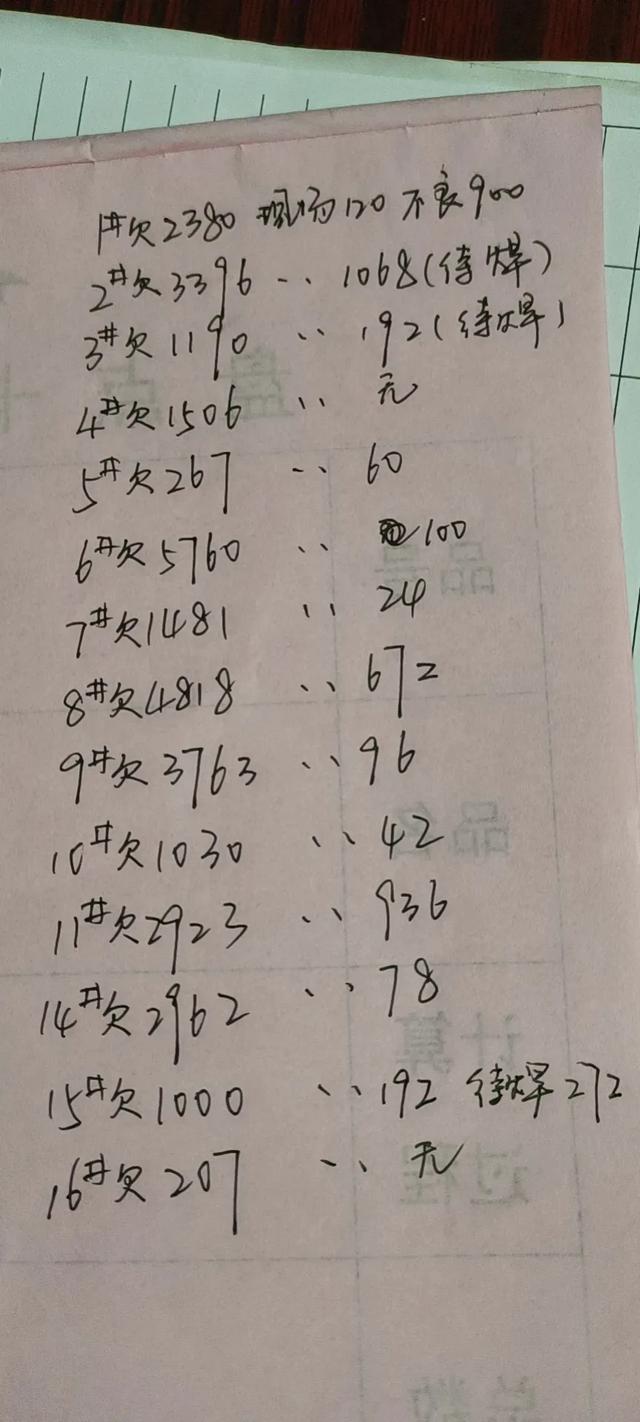 1#欠2380 现场120 不良900
2#欠3396 ‥ 1068(待焊)
3#欠1190 ‥ 192(待焊)
4#欠1506 ‥ 无
5#欠267 ‥ 60
6#欠5760 ‥ 100
7#欠1481 ‥ 24
8#欠4818 ‥ 672
9#欠3763 ‥ 96
10#欠1030 ‥ 42
11#欠2923 ‥ 936
14#欠2962 ‥ 78
15#欠1000 ‥ 192 待焊272
16#欠207 ‥ 无